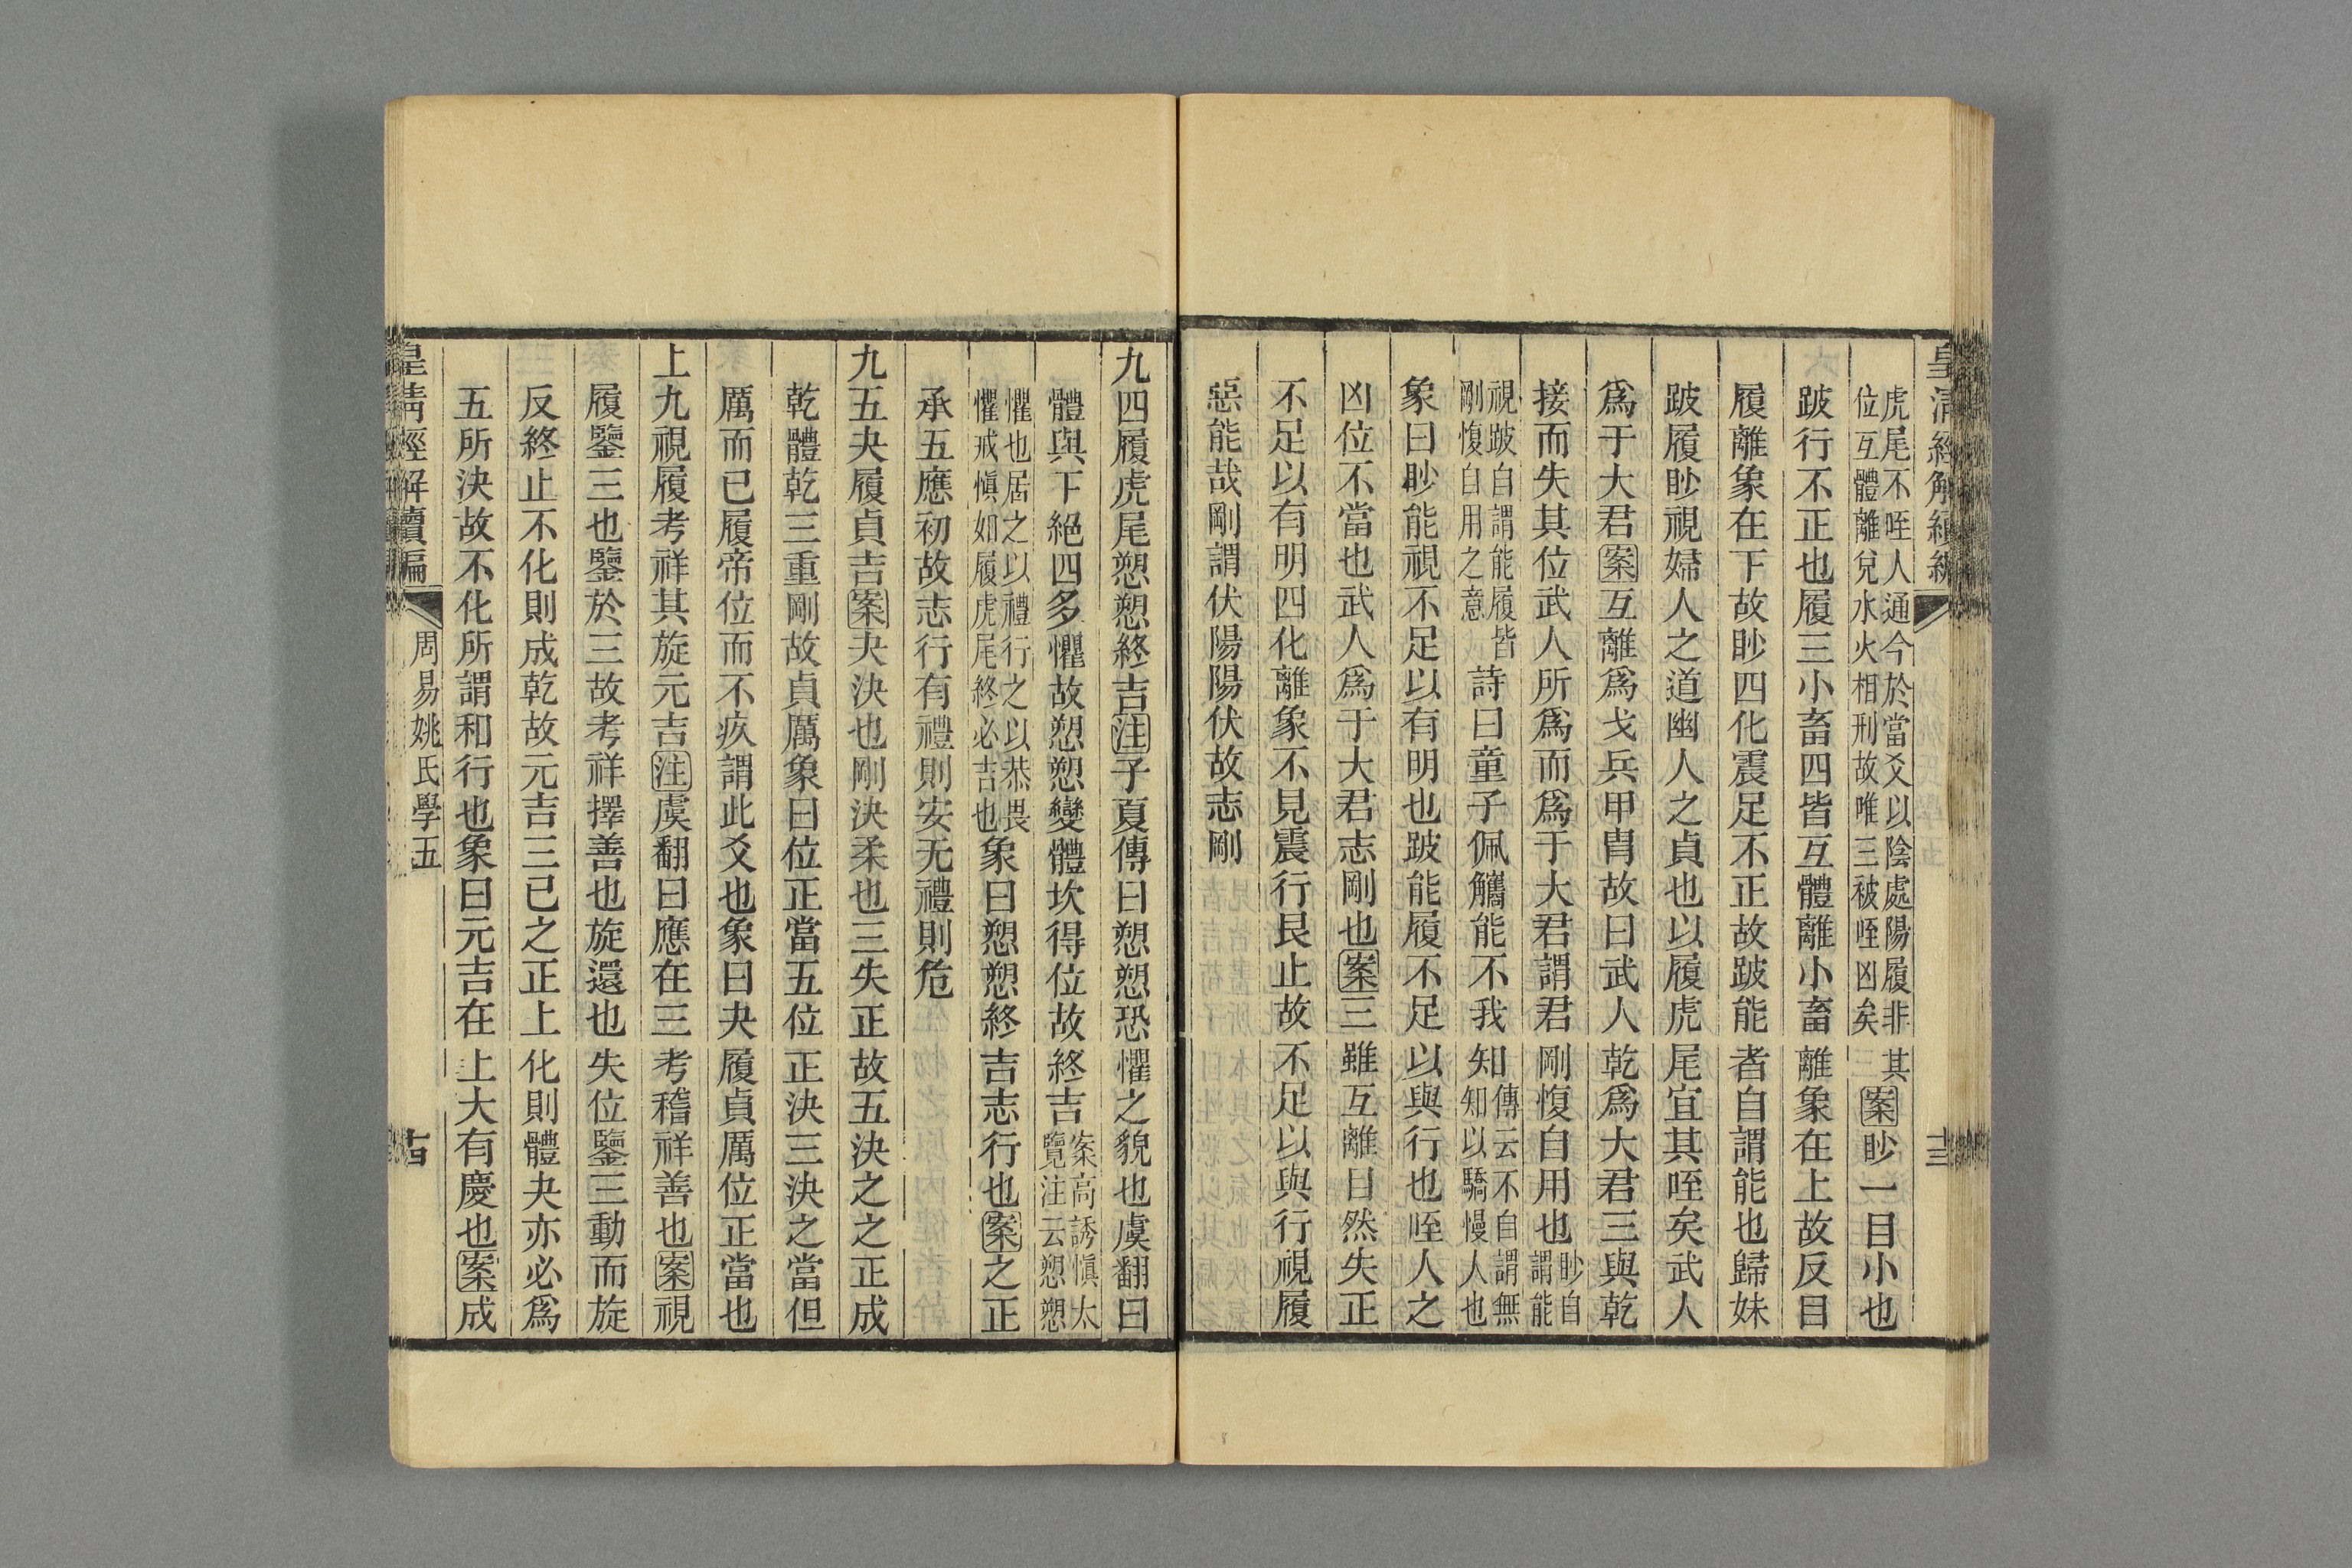 皇清經解續編
十三
虎尾不咥人通今於當爻以陰處陽履非其
位互體離兌水火相刑故唯三被咥凶矣
案眇一目小也
跛行不正也履三小畜四皆互體離小畜離象在上故反目
履離象在下故眇四化震足不正故跛能者自謂能也歸妹
跛履眇視婦人之道幽人之貞也以履虎尾宜其咥矣武人
爲于大君案互離爲戈兵甲胄故曰武人乾爲大君三與乾
接而失其位武人所爲而爲于大君謂君剛愎自用也
眇自
謂能
視跛自謂能履皆
剛愎自用之意
詩曰童子佩觿能不我知
傳云不自謂無
知以驕慢人也
象曰眇能視不足以有明也跛能履不足以與行也咥人之
凶位不當也武人爲于大君志剛也案三雖互離目然失正
不足以有明四化離象不見震行艮止故不足以與行視履
惡能哉剛謂伏陽陽伏故志剛
九四履虎尾愬愬終吉注子夏傳曰愬愬恐懼之貌也虞翻曰
體與下絕四多懼故愬愬變體坎得位故終吉
案高誘愼太
覽注云愬愬
懼也居之以禮行之以恭畏
懼戒愼如履虎尾終必吉也
象曰愬愬終吉志行也案之正
承五應初故志行有禮則安无禮則危
九五夬履貞吉案夬決也剛決柔也三失正故五決之之正成
乾體乾三重剛故貞厲象曰位正當五位正決三決之當但
厲而已履帝位而不疚謂此爻也象曰夬履貞厲位正當也
上九視履考祥其旋元吉注虞翻曰應在三考稽祥善也案視
履鑒三也鑒於三故考祥擇善也旋還也失位鑒三動而旋
反終止不化則成乾故元吉三已之正上化則體夬亦必爲
五所決故不化所謂和行也象曰元吉在上大有慶也案成
皇清經解續編
周易姚氏學五
十四